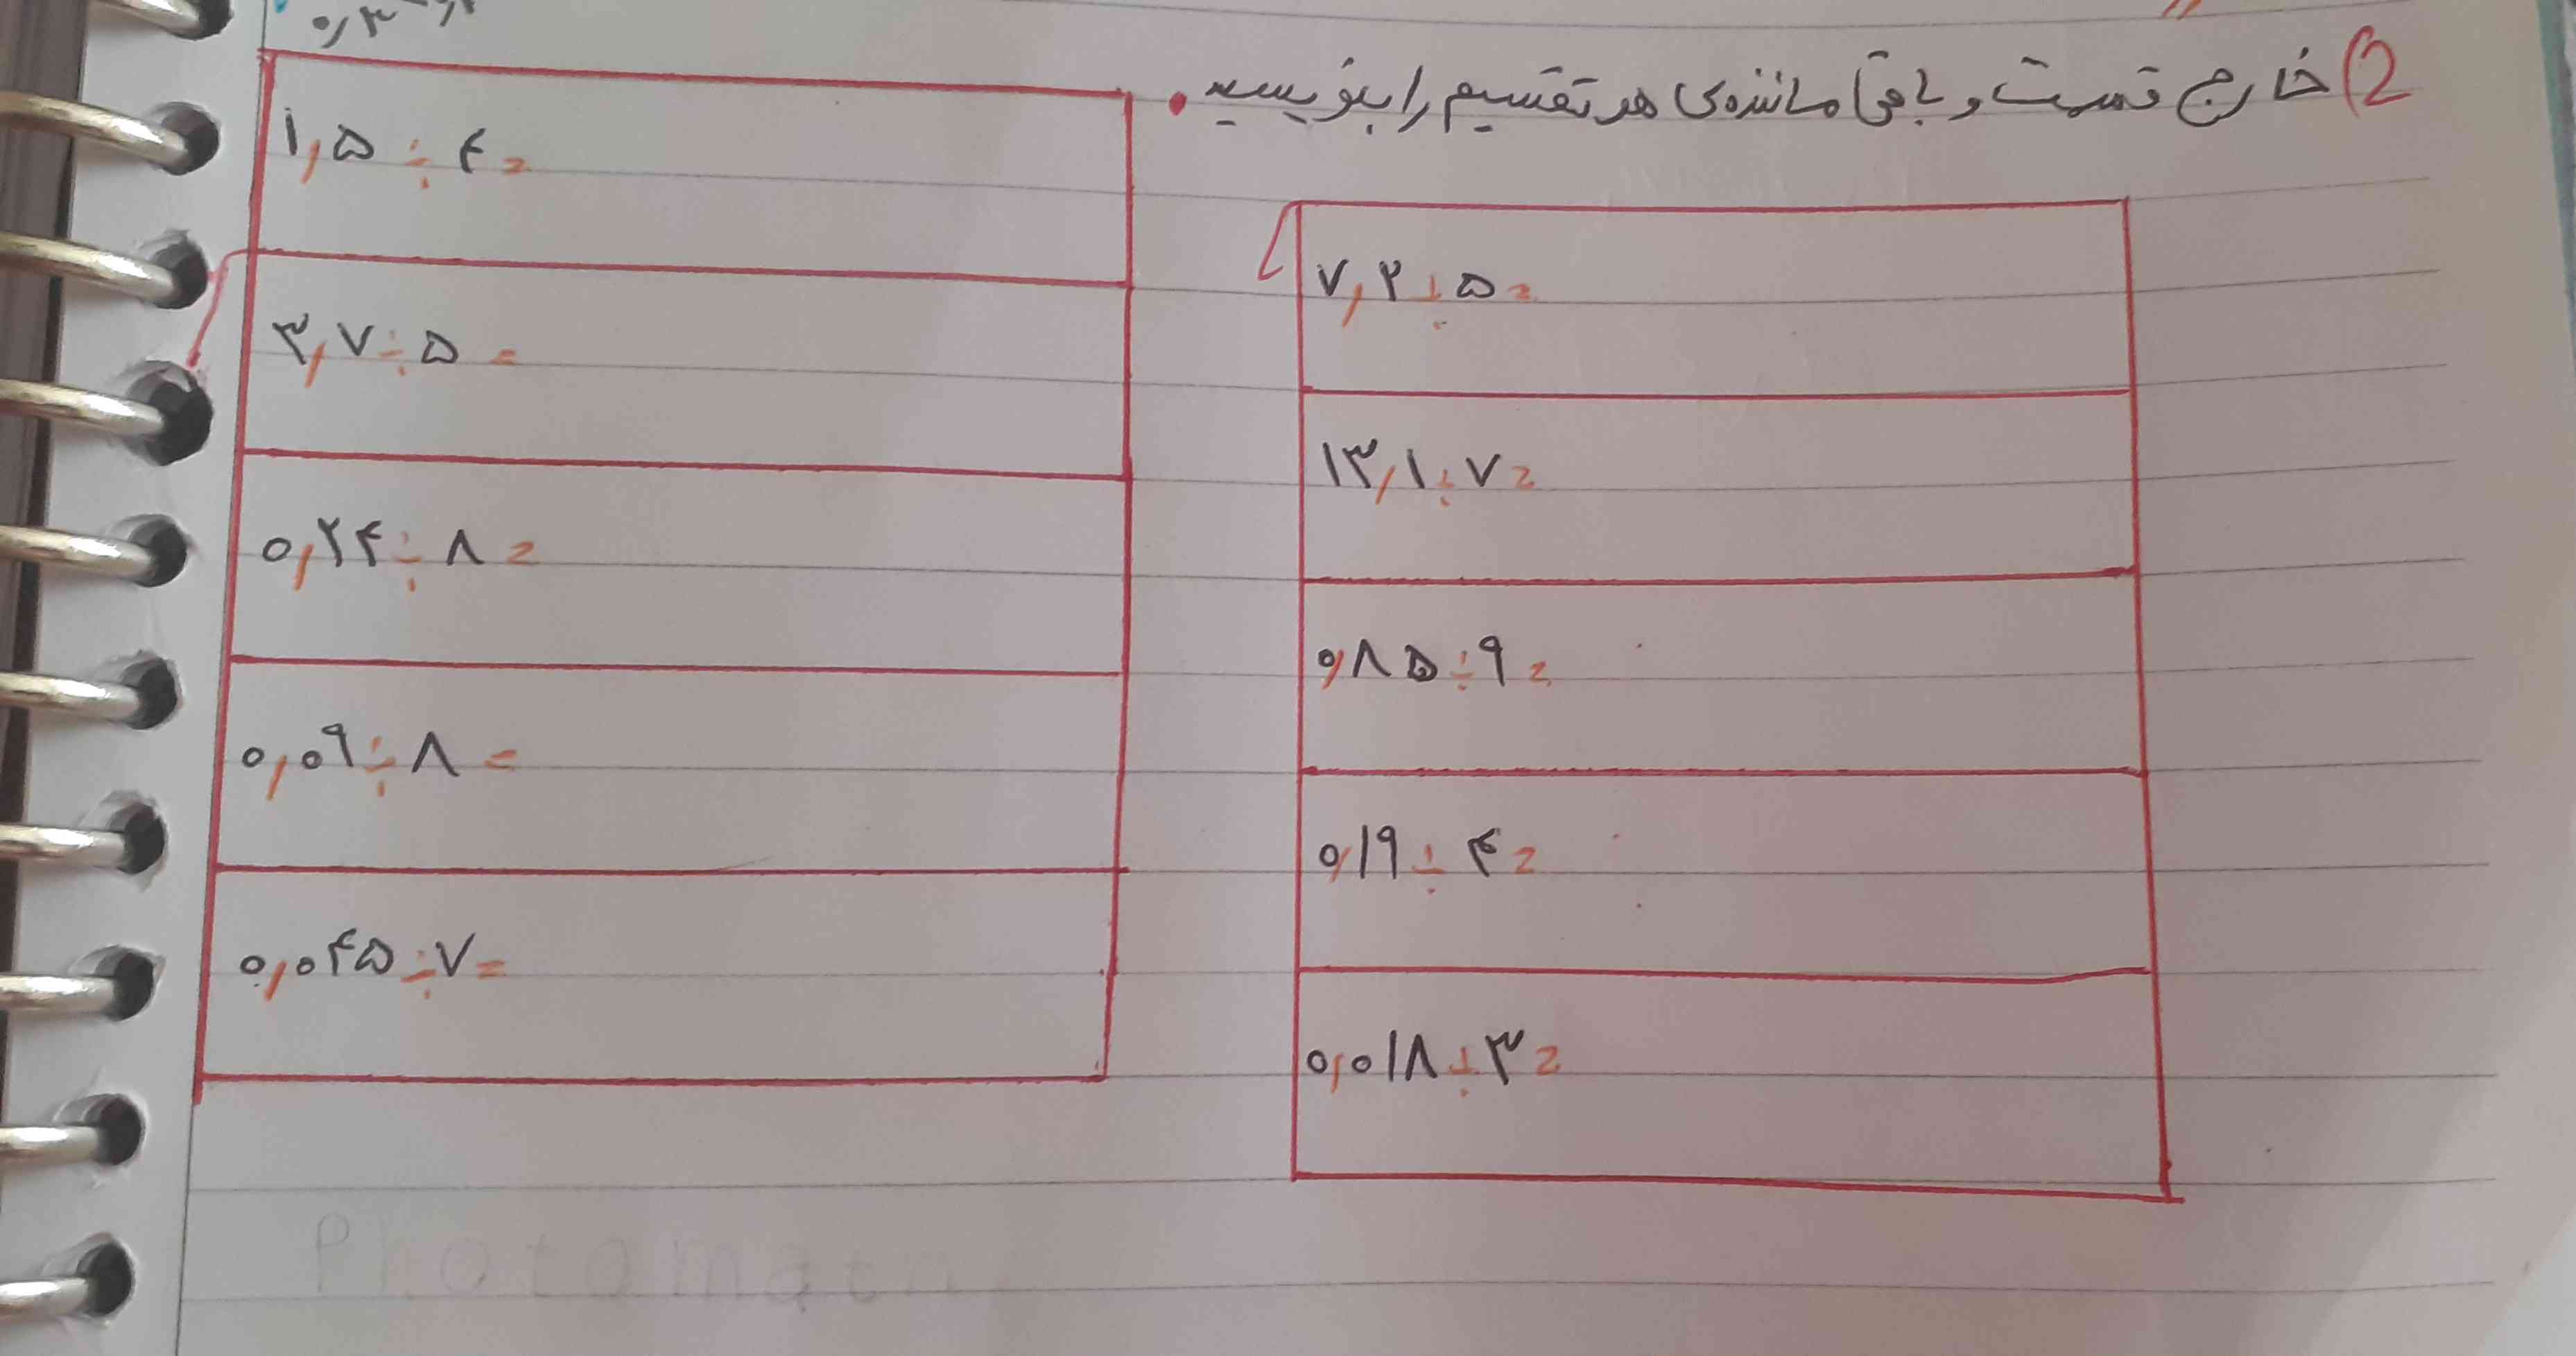 2) خارج قسمت و باقی مانده‌ی هر تقسیم را بنویسید.
۷٫۲ ÷ ۵ =
۱۳٫۱ ÷ ۷ =
۰٫۸۵ ÷ ۹ =
۰٫۱۹ ÷ ۴ =
۰٫۰۱۸ ÷ ۳ =
۱٫۵ ÷ ۴ =
۳٫۷ ÷ ۵ =
۰٫۲۴ ÷ ۸ =
۰٫۰۹ ÷ ۸ =
۰٫۰۴۵ ÷ ۷ =
Photomath